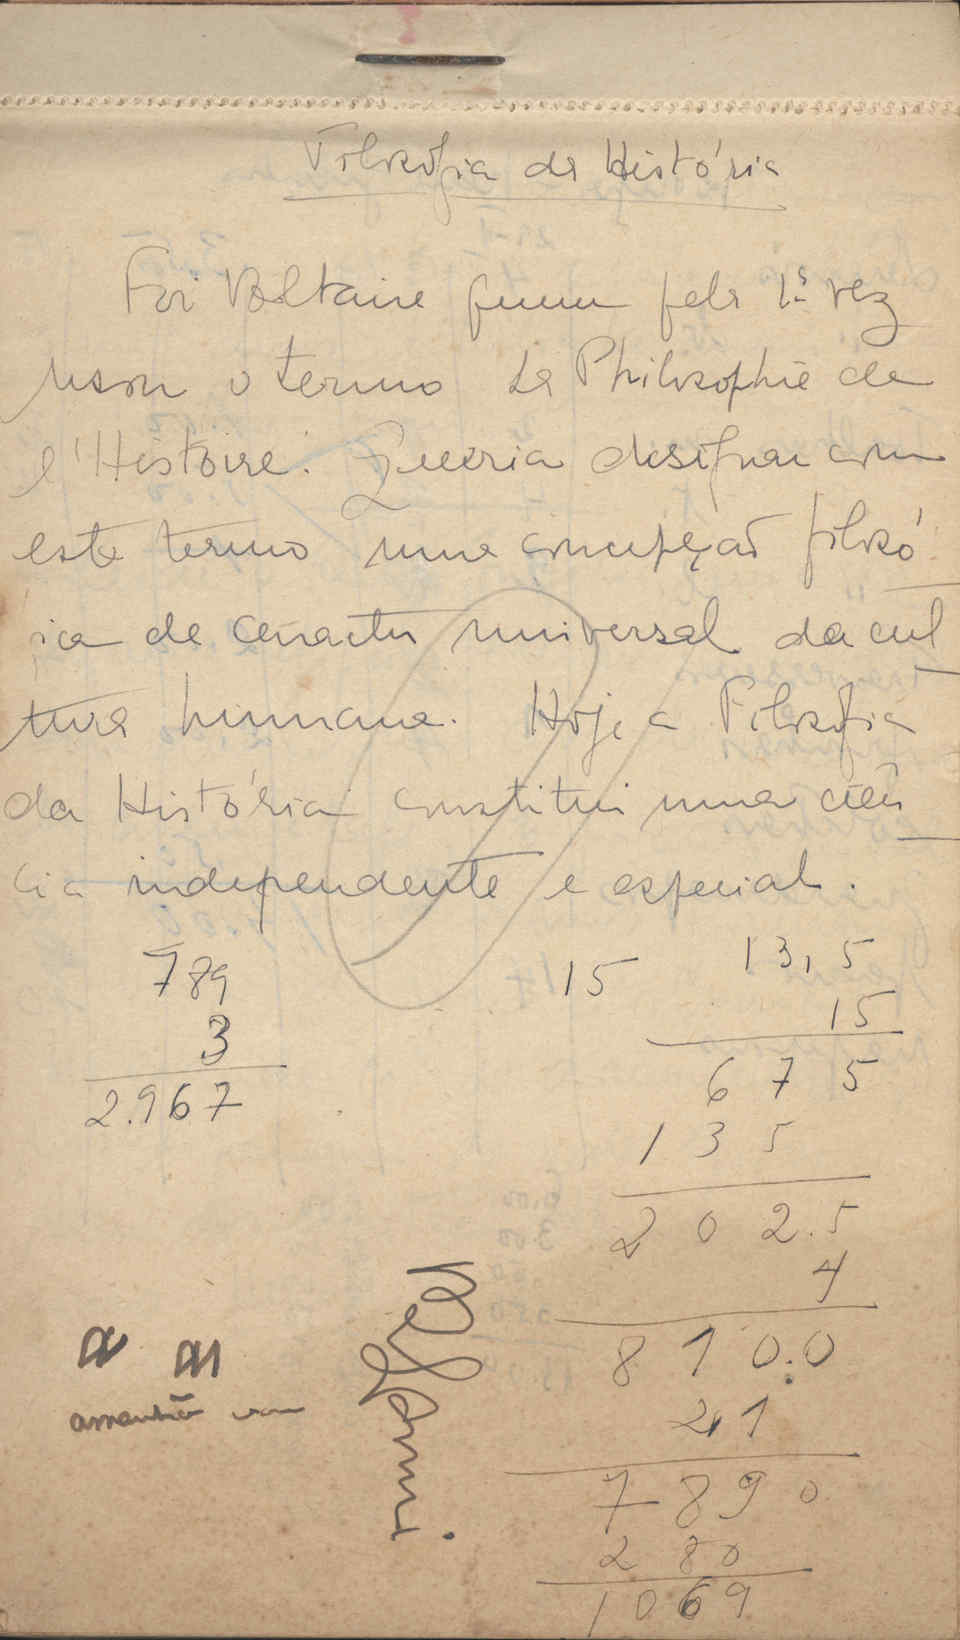 Filosofia da História
Foi Voltaire quem pela 1ª vez
usou o termo La Philosophie de
l'Histoire. Queria designar com
este termo uma concepção filosó
ica de caracter universal da cul
tura humana. Hoje a Filosofia
da História constitui uma ciên
cia independente e especial.
789
3
2.967
15
13,5
15
675
135
202.5
4
810.0
21
7890
280
1069
a